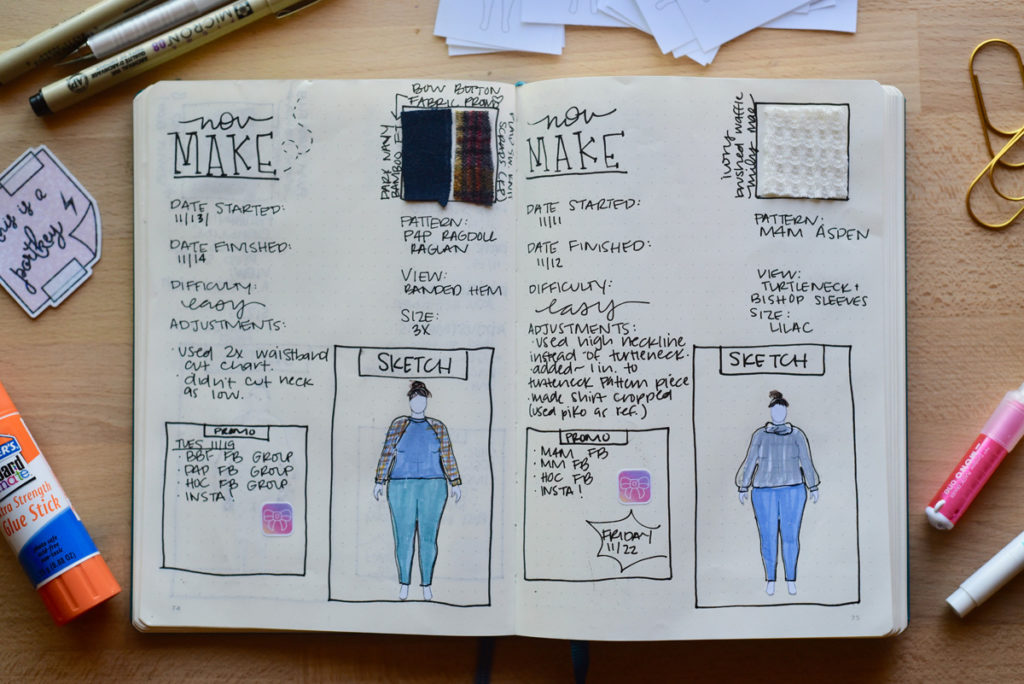 MICRON 08
now
MAKE
BOW BUTTON
FABRIC PROMO
DARK NAVY
BAMBOO FT
DATE STARTED:
11/13/
DATE FINISHED:
11/14
DIFFICULTY:
easy
ADJUSTMENTS:
• Used 2x waistband
cut chart.
• didn't cut neck
as low.
PATTERN:
P4P RAGDOLL
RAGLAN
VIEW:
BANDED HEM
SIZE:
3X
SKETCH
PROMO
TUES 11/19
• BBF FB GROUP
• P4P FB GROUP
• HOC FB GROUP
• INSTA!
74
now
MAKE
ivory
brushed waffle
miley mae
DATE STARTED:
11/11
DATE FINISHED:
11/12
DIFFICULTY:
easy
ADJUSTMENTS:
• used high neckline
instead of turtleneck.
• added ~ 1 in. to
turtleneck pattern piece
• made shirt cropped
(used piko as ref.)
PATTERN:
M4M ASPEN
VIEW:
TURTLENECK +
BISHOP SLEEVES
SIZE:
LILAC
SKETCH
PROMO
• M4M FB
• MM FB
• HOC FB
• INSTA!
FRIDAY
11/22
75
is a
party
Extra Strength
Glue Stick